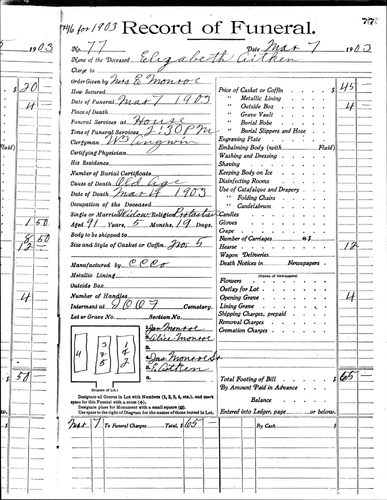 746 for 1903 Record of Funeral. 77
5 1903
No. 77 Date Mar 7 1903
Name of the Deceased Elizabeth Aitken
Charge to
Order Given by Mrs E Monroe
How Secured
Date of Funeral Mar 7 1903
Place of Death
Funeral Services at House
Time of Funeral Services 2:30 PM
Clergyman
Certifying Physician
His Residence
Number of Burial Certificate
Cause of Death Old Age
Date of Death Mar 1903
Occupation of the Deceased
Single or Married Widow Religion Protestan
Aged 91 Years, 5 Months, 19 Days.
Body to be shipped to
Size and Style of Casket or Coffin No. 5
Manufactured by CCCo
Metallic Lining
Outside Box
Number of Handles
Interment at IOOF Cemetery.
Lot or Grave No. Section No.
4
3 2 5
1 & 2
Diagram of Lot.
Jan Monroe
Alice Monroe
a.
Jas Monroe Sr
E Aitken
Designate all Graves in Lot with Numbers (1, 2, 3, 4, etc.), and mark
space for this Funeral with a cross (+).
Designate place for Monument with a small square (□).
Use space to the right of Diagram for the names of those buried in Lot.
Price of Casket or Coffin $ 45
" Metallic Lining
" Outside Box 4
" Grave Vault
" Burial Robe
" Burial Slippers and Hose
Engraving Plate
Embalming Body (with Fluid)
Washing and Dressing
Shaving
Keeping Body on Ice
Disinfecting Rooms
Use of Catafalque and Drapery
" Folding Chairs
" Candelabrum
Candles
Gloves
Crape
Number of Carriages @ $
Hearse 12
Wagon Deliveries
Death Notices in Newspapers
(Names of Newspapers)
Flowers
Outlay for Lot
Opening Grave 4
Lining Grave
Shipping Charges, prepaid
Removal Charges
Cremation Charges
Total Footing of Bill $ 65
By Amount Paid in Advance
Balance
Entered into Ledger, page or below.
Mar 7 To Funeral Charges Total, $ 65 By Cash $
$ 20
4
Fluid)
1 50
8 50
12
4
$ 50